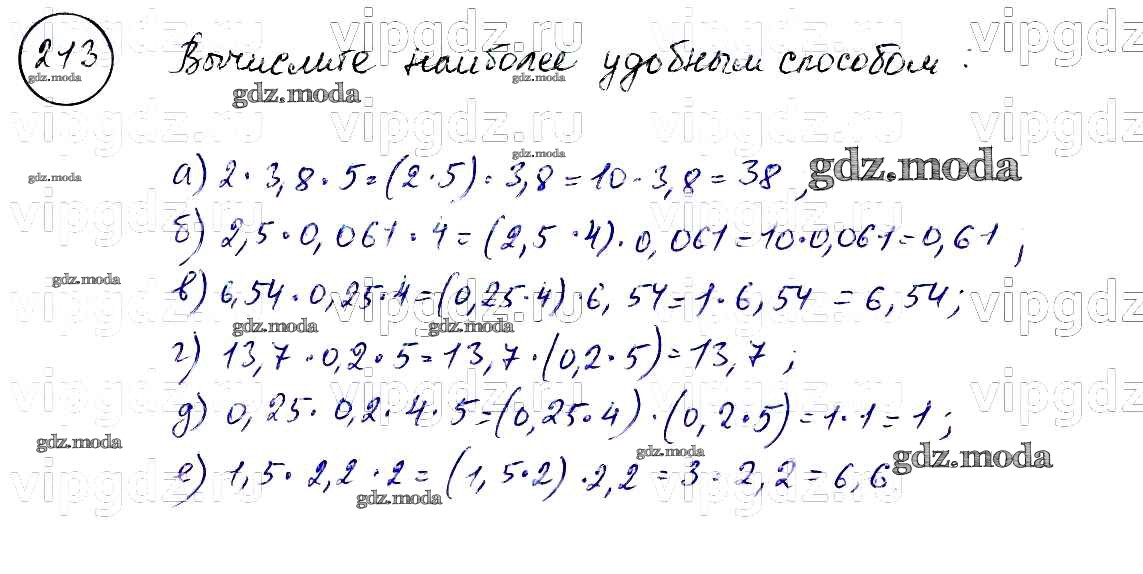 213 Вычислите наиболее удобным способом :
а) 2 · 3,8 · 5 = (2 · 5) · 3,8 = 10 · 3,8 = 38 ;
б) 2,5 · 0,061 · 4 = (2,5 · 4) · 0,061 = 10 · 0,061 = 0,61 ;
в) 6,54 · 0,25 · 4 = (0,25 · 4) · 6,54 = 1 · 6,54 = 6,54 ;
г) 13,7 · 0,2 · 5 = 13,7 · (0,2 · 5) = 13,7 ;
д) 0,25 · 0,2 · 4 · 5 = (0,25 · 4) · (0,2 · 5) = 1 · 1 = 1 ;
е) 1,5 · 2,2 · 2 = (1,5 · 2) · 2,2 = 3 · 2,2 = 6,6
gdz.moda
vipgdz.ru